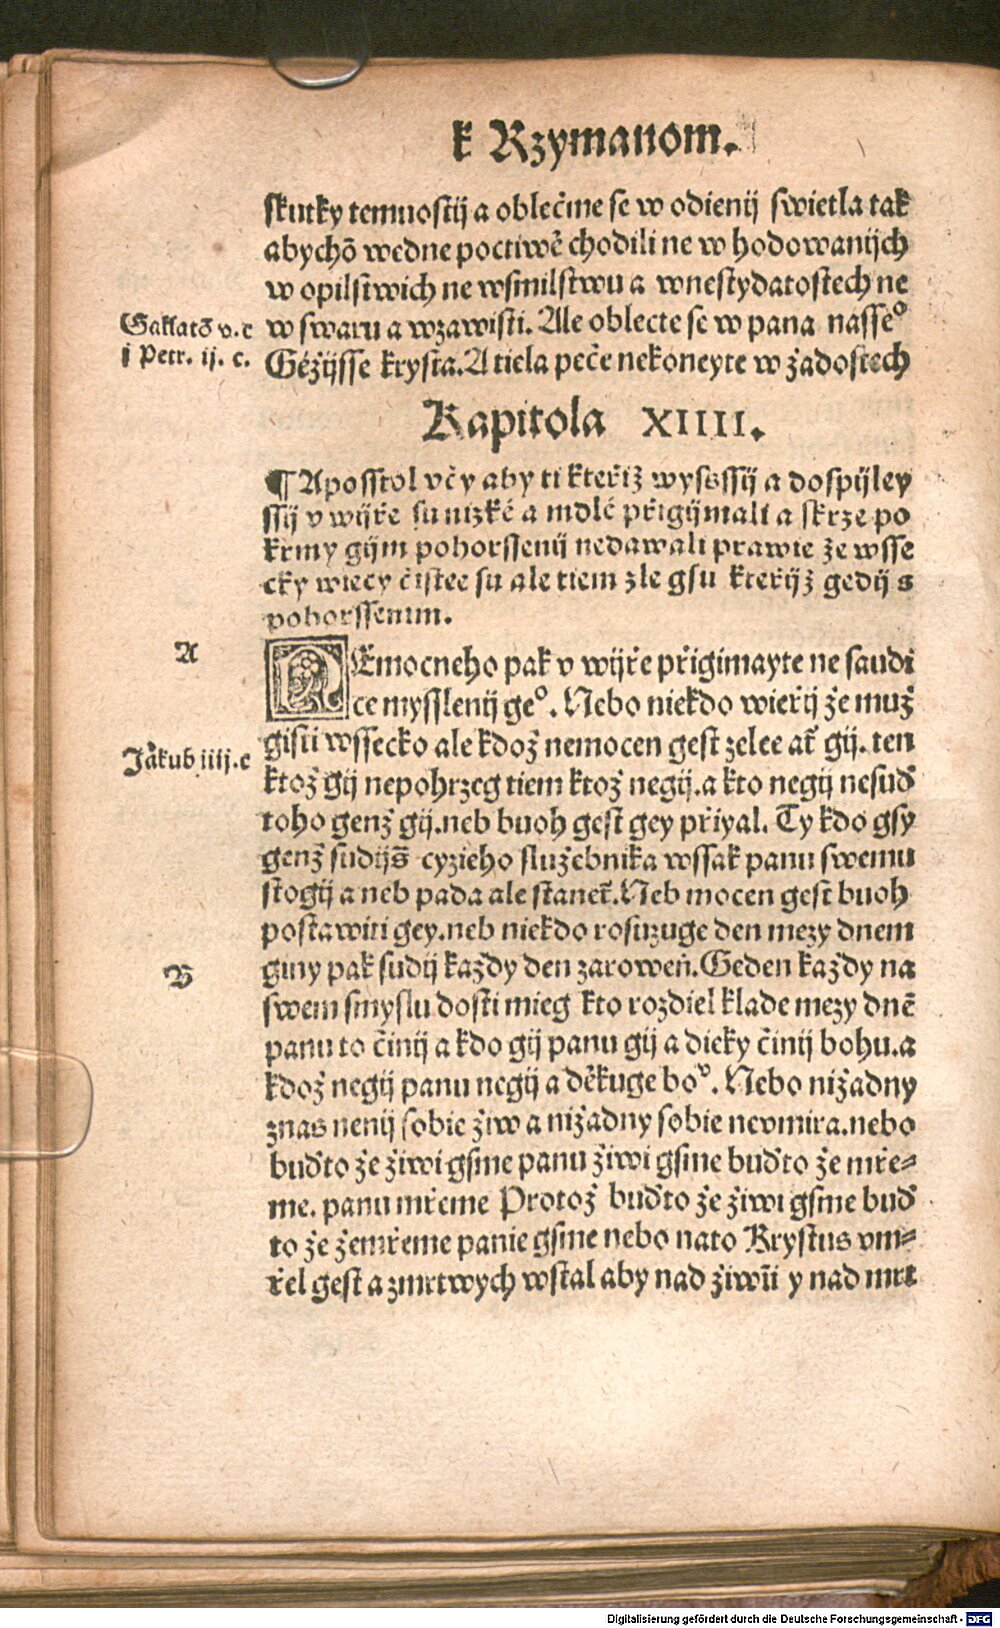 k Rzymanom.
skutky temnostij a oblečme se w odienij swietla tak
abychō wedne poctiwě chodili ne w hodowanijch
w opilstwich ne wsmilstwu a wnestydatostech ne
Gallatō v. c
w swaru a wzawisti. Ale oblecte se w pana nasseº
j Petr. ij. c.
Gežijsse krysta. A tiela peče nekoneyte w žadostech
Kapitola XIIII.
¶ Aposstol včy aby ti kteřiž wysssij a dospijley
ssij v wijře su nizké a mdlé přigijmali a skrze po
krmy gijm pohorssenij nedawali prawie že wsse
cky wiecy čistee su ale tiem zle gsu kteřijž gedij s
pohorssenim.
A
NEmocneho pak v wijře přigimayte ne saudi
ce mysslenij geº. Nebo niekdo wieřij že muž
gisti wssecko ale kdož nemocen gest zelee ať gij. ten
Jakub iiij. c
ktož gij nepohrzeg tiem ktož negij. a kto negij nesuď
toho genž gij. neb buoh gest gey přiyal. Ty kdo gsy
genž sudijš cyzieho služebnika wssak panu swemu
stogij a neb pada ale staneť. Neb mocen gest buoh
postawiti gey. neb niekdo rosuzuge den mezy dnem
B
giny pak sudij každy den zaroweň. Geden každy na
swem smyslu dosti mieg kto rozdiel klade mezy dnē
panu to činij a kdo gij panu gij a dieky činij bohu. a
kdož negij panu negij a děkuge boº. Nebo nižadny
znas nenij sobie žiw a nižadny sobie nevmira. nebo
buďto že žiwi gsme panu žiwi gsme buďto že mře=
me. panu mřeme Protož buďto že žiwi gsme buď
to že žemřeme panie gsme nebo nato Krystus vm=
řel gest a zmrtwych wstal aby nad žiwīi y nad mrt
Digitalisierung gefördert durch die Deutsche Forschungsgemeinschaft - DFG